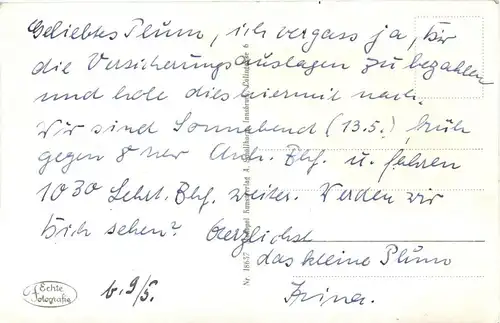 Geliebtes Plum, ich vergass ja, Dir
die Versicherungsauslagen zu bezahlen
und hole dies hiermit nach.
Wir sind Sonnabend (13.5.) früh
gegen 8 Uhr Anh. Bhf. u. fahren
1030 Lehrt. Bhf. weiter. Werden wir
Dich sehen? Herzlichst
das kleine Plum
Irina.
b. 9/5.
Echte
Fotografie
Nr. 16657
Kunstverlag A. Stockhammer, Innsbruck,